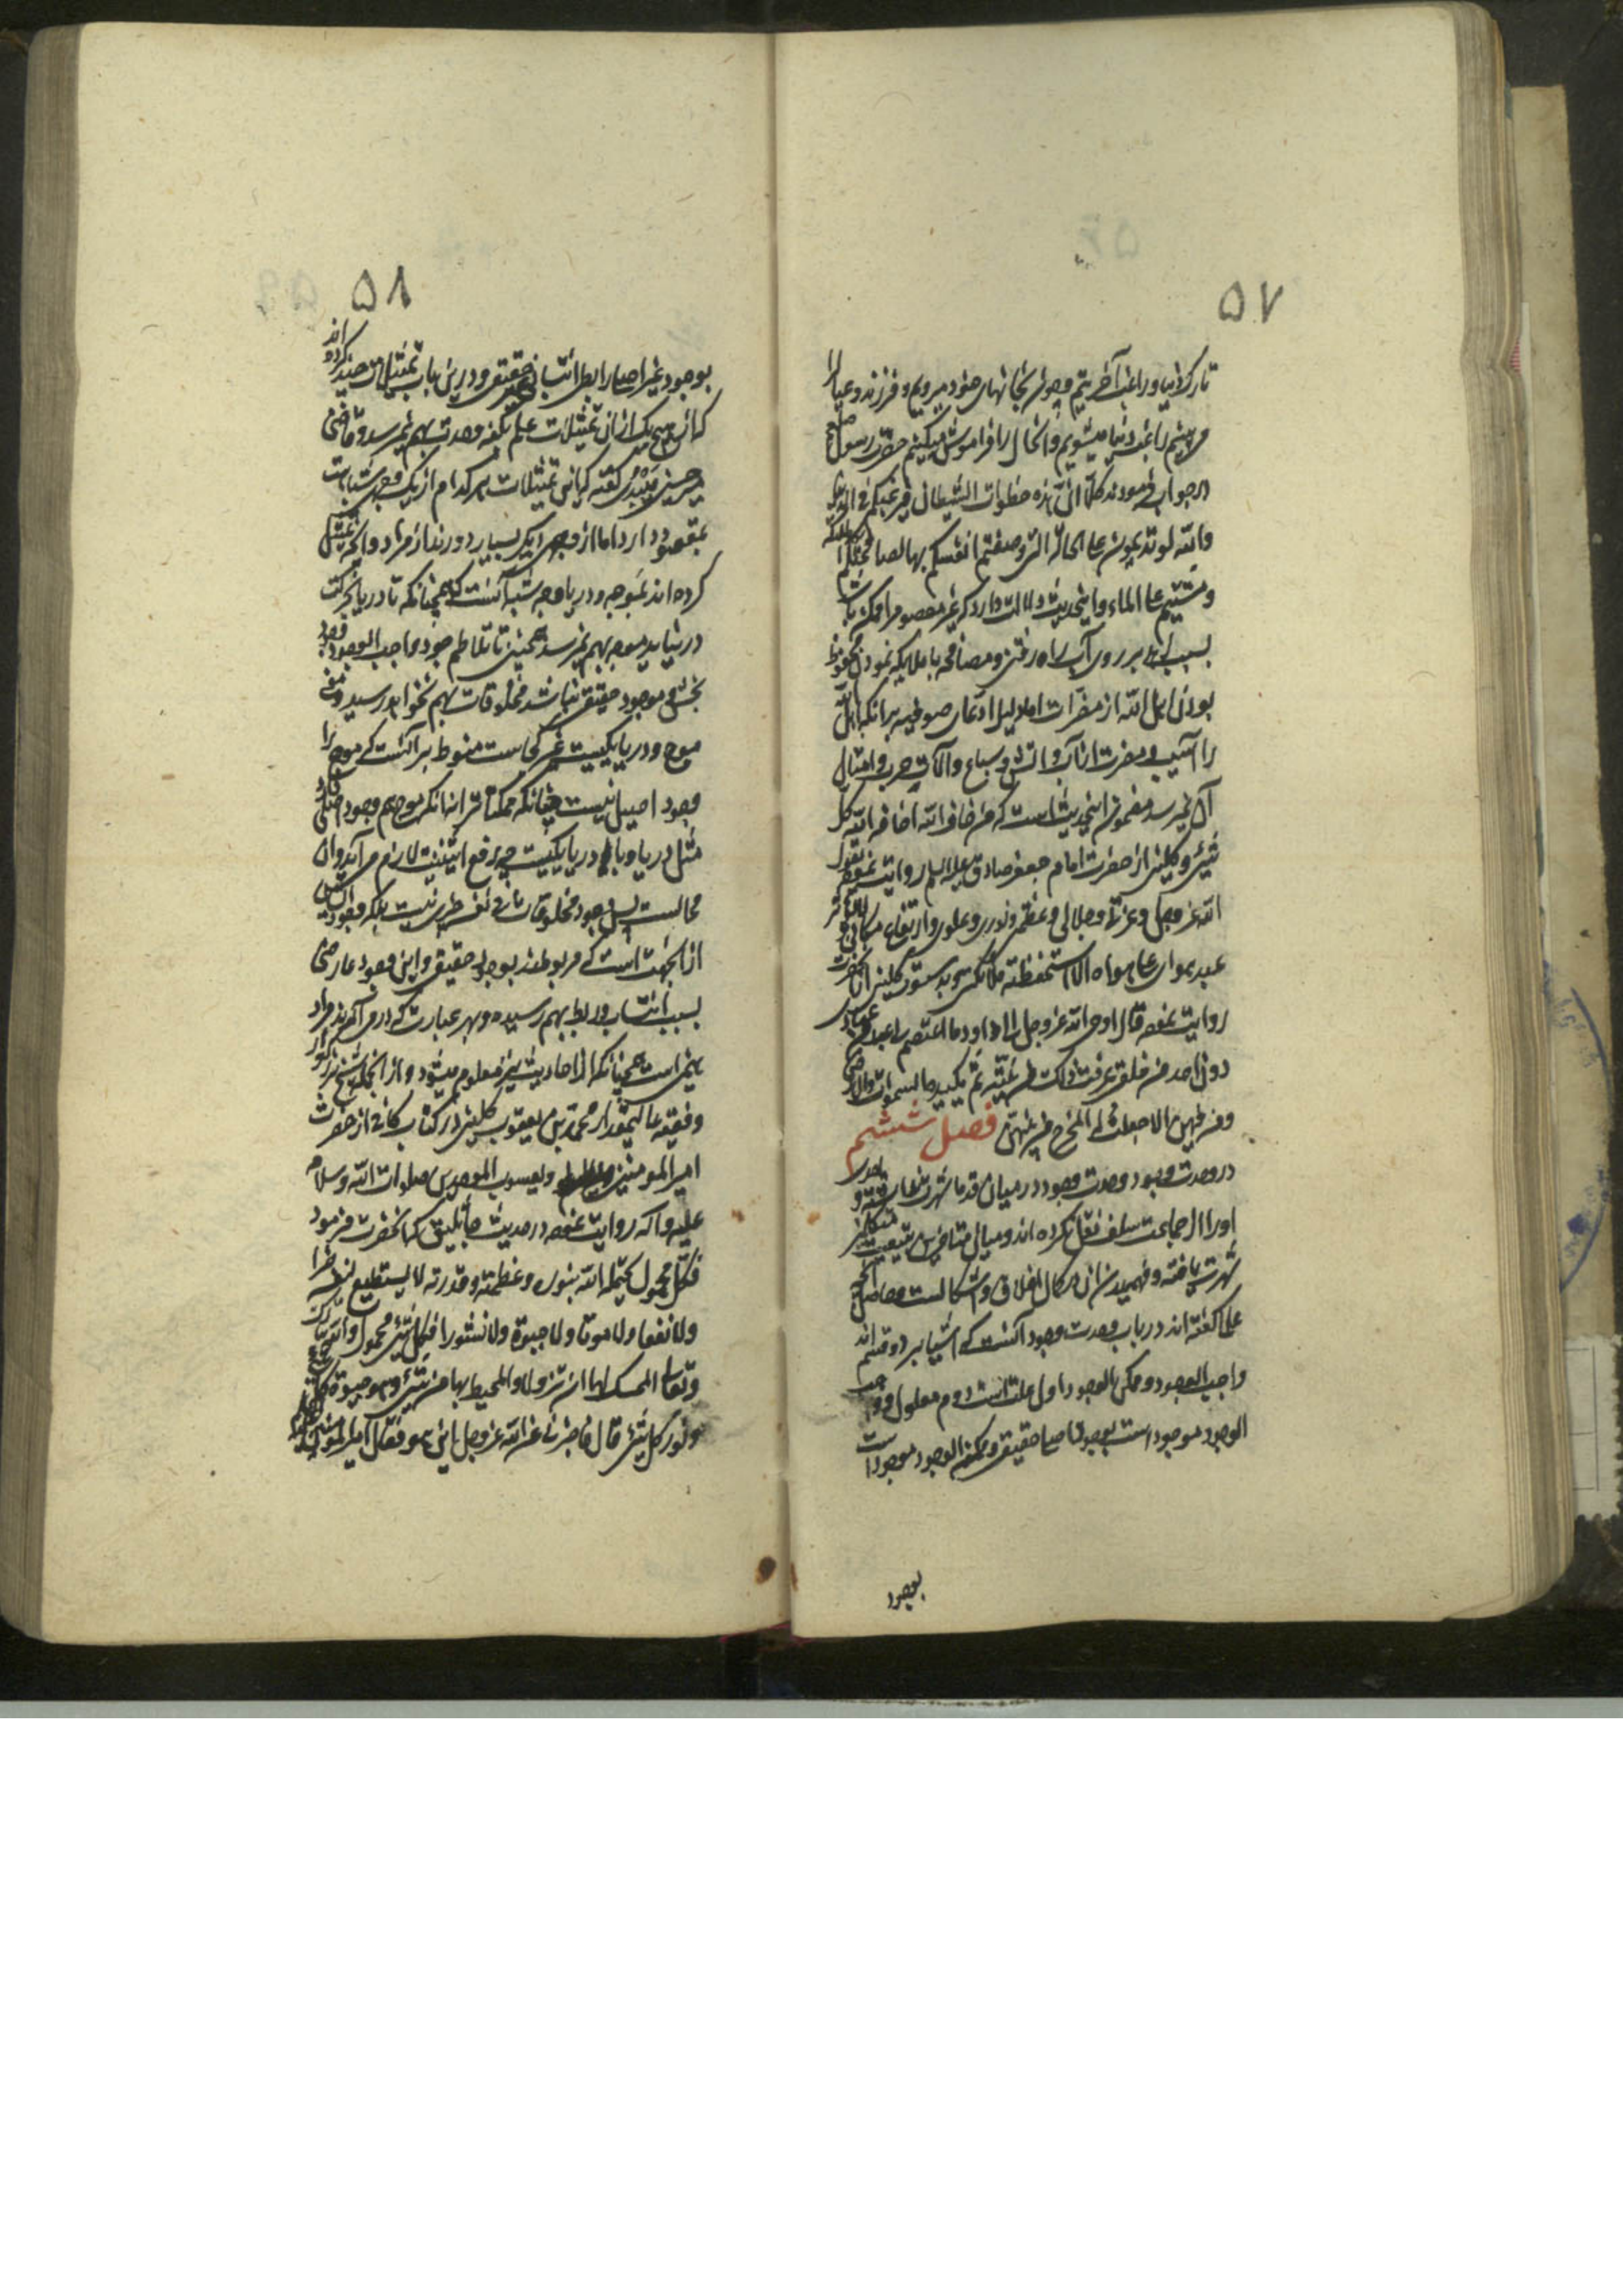 ۵۷
تارک دنیا و راغب آخرتیم و چون بخانهای خود میرویم و فرزند و عیال را
می بینیم راغب دنیا میشویم و انحال را فراموش میکنیم حضرت رسول صلعم
در جواب فرمودند کلا ان هذه خطوات الشیطان فیرغبکم فی الدنیا
والله لو تدیمون علی الحالة التی وصفتم انفسکم بها لصافحتکم الملائکة
و مشیتم علی الماء و اینحدیث دلالت دارد که غیر معصوم را ممکن باشد
بسبب بر روی آب راه رفتن و مصافحه با ملایکه نمودن و محفوظ
بودن اهل الله از مضرات اما دلیل ادعای صوفیه بر آنکه اهل الله
را آسیب و مضرت از آب و آتش و سباع و آلات حرب و امثال
آن نمیرسد مضمون اینحدیث است که من خاف الله اخاف الله کل
شیء و کلینی از حضرت امام جعفر صادق علیه السلام روایت نموده یقول
الله عز و جل و عزتی و جلالی و عظمتی و نوری و علوی و ارتفاع مکانی لا یؤثر
عبد هوای علی هواه الا استحفظته ملائکتی و بدستور کلینی از آنحضرت
روایت نموده قال اوحی الله عز و جل الی داود ما اعتصم بی عبد من عبادی
دون احد من خلقی عرفت ذلک من نیته ثم یکیده السموات والارض
و من فیهن الا جعلت له المخرج من بینهن فصل ششم
در وحدت وجود وحدت وجود در میان قدما شهرت نداشته و
او را از جماعت سلف نقل نکرده اند و میان متاخرین
شهرت یافته و فهمیدن آن در کمال اغلاق و اشکالست و حاصل آنچه
علما گفته اند در باب وحدت وجود آنست که اشیا بر دو قسم اند
واجب الوجود و ممکن الوجود اول علت است دوم معلول و واجب
الوجود موجود است بوجود اصلی حقیقی و ممکن الوجود موجود است
بوجود
۵۸
بوجود غیر اصلی رابطی انتسابی حقیقی و درین باب تمثیلات چند کرده اند
که از هیچ یک از آن تمثیلات علم بکنه وحدت بهم نمیرسد و قاضی
میر حسین میبدی گفته که این تمثیلات هر کدام از یک وجه شباهت
بمقصود دارد اما از وجهی دیگر بسیار دورند از مراد و آنچه تمثیل
کرده اند بموجه و دریا وجه شبه آنست که همچنانکه تا دریا بحرکت
در نیاید موجه بهم نمیرسد همچنین تا تلاطم جود واجب الوجود وجود
بخش موجود حقیقی نباشد مخلوقات بهم نخواهد رسید و معنی
موج و دریا یکیست غیر کجاست منوط بر آنست که موج را
وجود اصیل نیست چنانکه ممکنات را نه آنکه موج هم وجود اصلی دارد
مثل دریا و با دریا یکیست چه رفع اثنینیت لازم می آید و آن
محالست پس وجود مخلوقات فی نفسه چیزی نیست بلکه وجود ایشان
از آنجهت است که مربوطند بوجود حقیقی و این وجود عارضی
بسبب انتساب و ربط بهم رسیده و بهر عبارت که در می آورند مراد
همین است همچنانکه از احادیث نیز معلوم میشود و از آنجمله شیخ بزرگوار
و فقیه عالیمقدار محمد بن یعقوب کلینی در کتاب کافی از حضرت
امیر المومنین و یعسوب الموحدین صلوات الله و سلامه
علیه و آله روایت نموده در حدیث جاثلیق که آنحضرت فرمود
فکل محمول یحمله الله بنوره و عظمته و قدرته لا یستطیع لنفسه ضرا
ولا نفعا ولا موتا ولا حیوة ولا نشورا فکل شیء محمول والله تبارک
و تعالی الممسک لهما ان تزولا والمحیط بهما من شیء و هو حیوة کل شیء
و نور کل شیء قال فاخبرنی عن الله عز و جل این هو فقال امیر المومنین